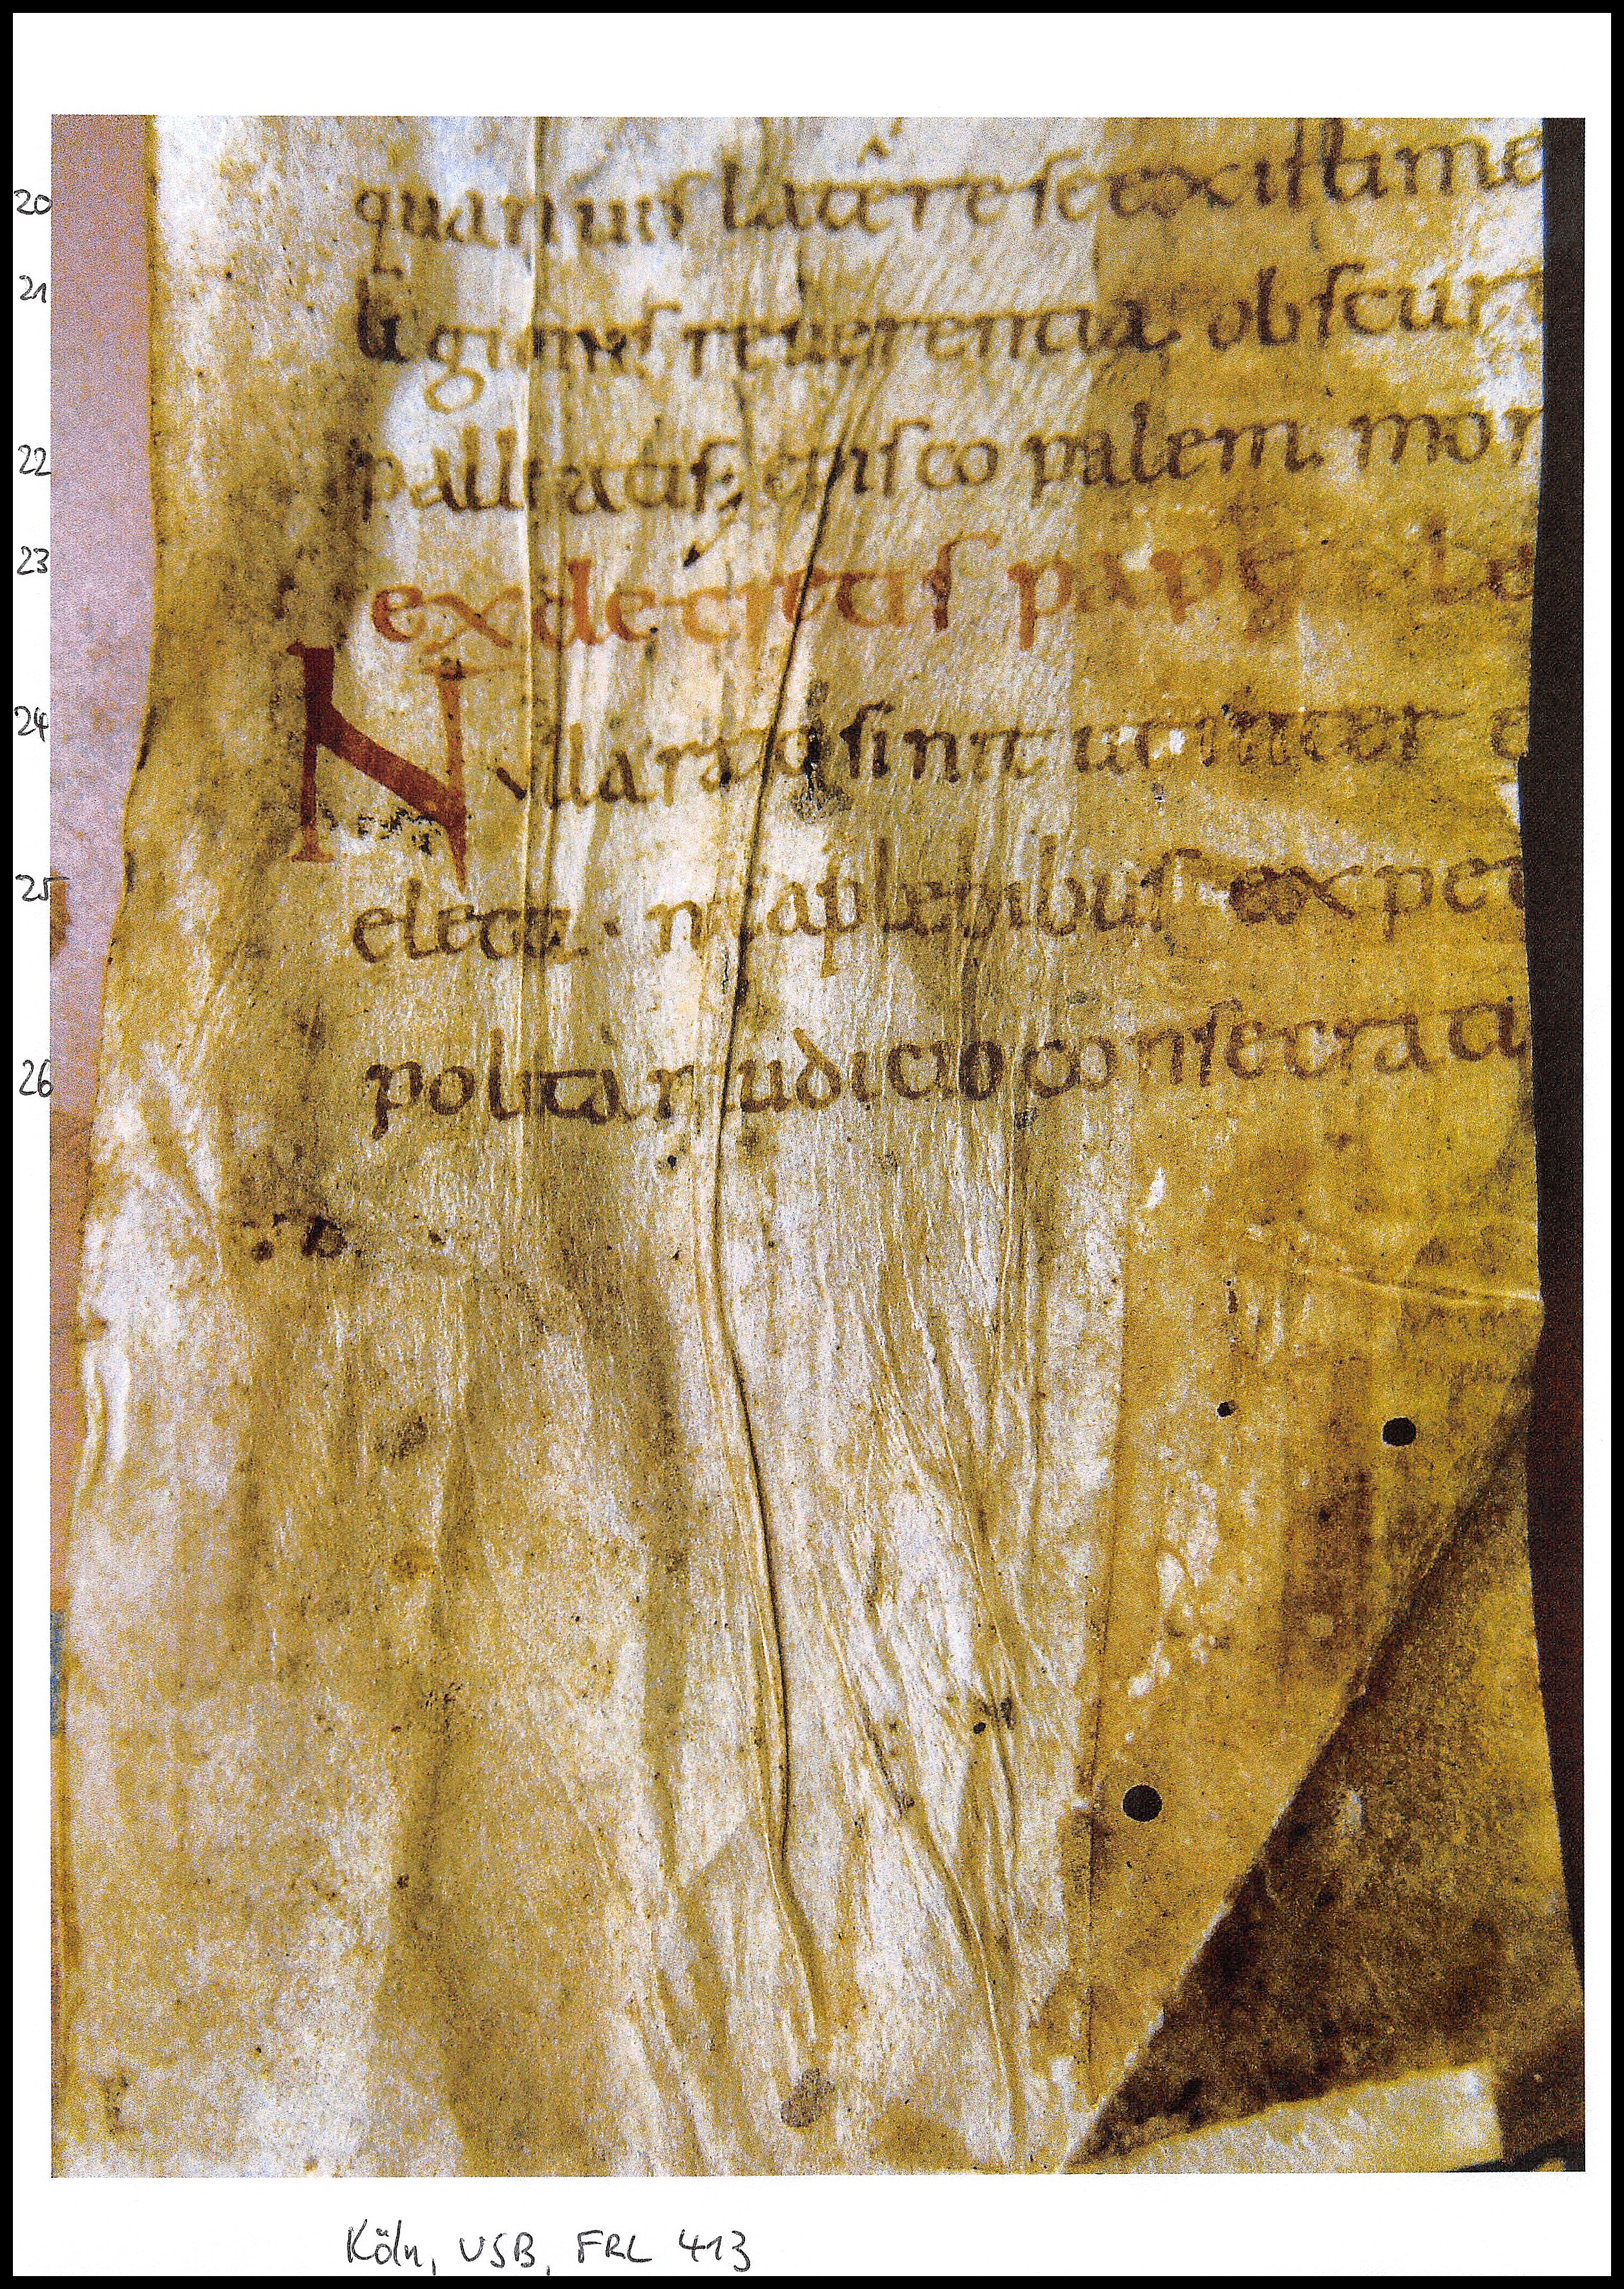 20 quamuis latere se existime
21 ligionis reuerentia obscur
22 palliatis; episcopalem. mor
23 ex decretis pape Le
24 Nulla ratio sinit ut inter e
25 electi. nec a plebibus expet
26 politani iudicio consecrati
Köln, USB, FRL 413